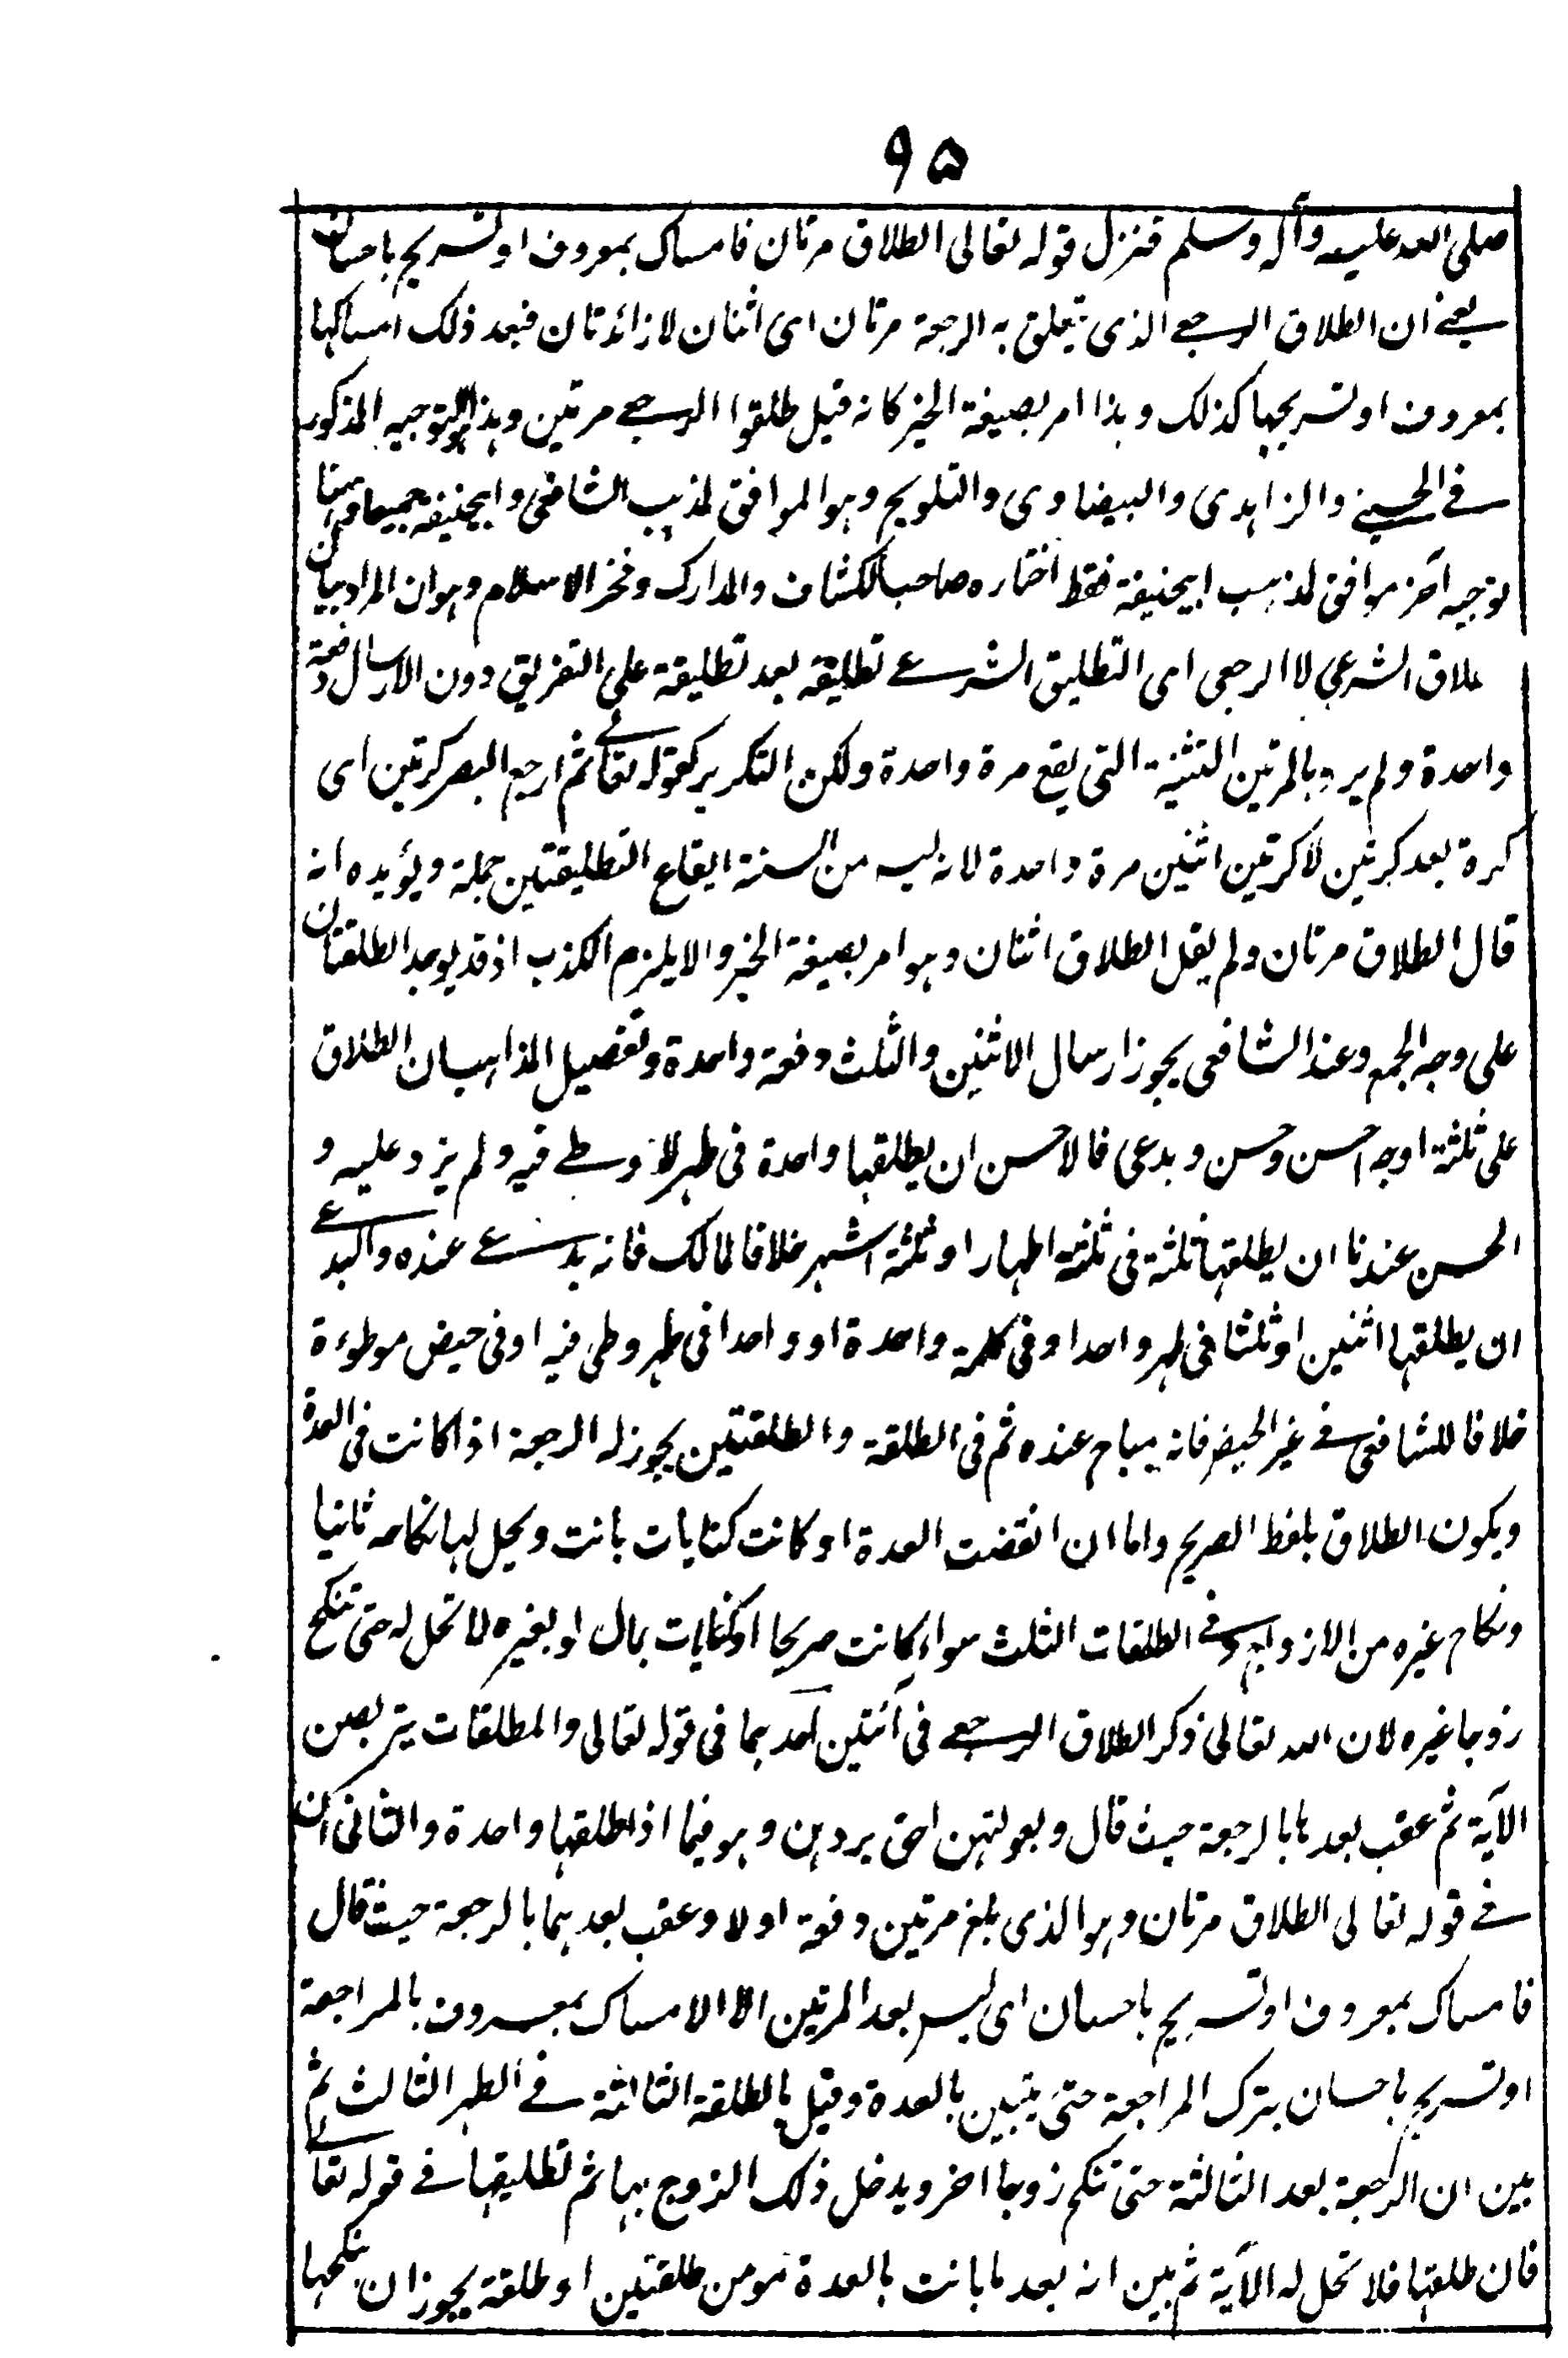 ٩۵
صلی الله علیه وآله وسلم فنزل قوله تعالی الطلاق مرتان فامساک بمعروف او تسریح باحسان
یعنے ان الطلاق الرجعے الذی یتعلق به الرجعة مرتان ای اثنان لا زائدتان فبعد ذلک امساکها
بمعروف او تسریحها کذلک وہذا امر بصیغة الخبر کانه قیل طلقوا الرجعے مرتین وہذا التوجیه المذکور
فے الحسینے والزاہدی والبیضاوی والتلویح وہو الموافق لمذہب الشافعی وابیحنیفة جمیعا وہہنا
توجیه آخر موافق لمذہب ابیحنیفة فقط اختاره صاحب الکشاف والمدارک وفخر الاسلام وہو ان المراد بیان
طلاق الشرعی لا الرجعی ای التطلیق الشرعے تطلیقة بعد تطلیقة علی التفریق دون الارسال دفعة
واحدة ولم یرد بالمرتین التثنیة التی یقع مرة واحدة ولکن التکریر کقوله تعالے ثم ارجع البصر کرتین ای
کرة بعد کرتین لا کرتین اثنین مرة واحدة لانه لیس من السنة ایقاع التطلیقتین جملة ویؤیده انه
قال الطلاق مرتان ولم یقل الطلاق اثنان وہو امر بصیغة الخبر والا یلزم الکذب اذ قد یوجد الطلقتان
علی وجه الجمع وعند الشافعی یجوز ارسال الاثنین والثلث دفعة واحدة وتفصیل المذاہب ان الطلاق
علی ثلثة اوجه احسن وحسن وبدعی فالاحسن ان یطلقها واحدة فی طهر لا وطے فیه ولم یزد علیه و
الحسن عندنا ان یطلقها ثلثة فی ثلثة اطهار او ثلثة اشهر خلافا لمالک فانه بدعے عنده والبدعے
ان یطلقها اثنین او ثلثا فی طهر واحد او فی کلمة واحدة او واحدا فی طهر وطی فیه او فی حیض موطوءة
خلافا للشافعی فے غیر الحیض فانه مباح عنده ثم فی الطلقة والطلقتین یجوز له الرجعة اذا کانت فی العدة
ویکون الطلاق بلفظ الصریح واما ان انقضت العدة او کانت کنایات بانت ویحل لها نکاحه ثانیا
ونکاح غیره من الازواج وفے الطلقات الثلث سواء کانت صریحا او کنایات بمال او بغیره لا تحل له حتی تنکح
زوجا غیره لان الله تعالی ذکر الطلاق الرجعے فی آئتین احدہما فی قوله تعالی والمطلقات یتربصن
الآیة ثم عقب بعدها بالرجعة حیث قال وبعولتهن احق بردہن وہو فیما اذا طلقها واحدة والثانی ان
فے قوله تعالی الطلاق مرتان وہو الذی بلغ مرتین دفعة اولا وعقب بعدہما بالرجعة حیث قال
فامساک بمعروف او تسریح باحسان ای لیس بعد المرتین الا الامساک بمعروف بالمراجعة
او تسریح باحسان بترک المراجعة حتی یتبین بالعدة وقیل بالطلقة الثالثة فے الطهر الثالث ثم
بین ان الرجعة بعد الثالثة حتی تنکح زوجا اخر ویدخل ذلک الزوج بہا ثم تطلیقها فے قوله تعالے
فان طلقها فلا تحل له الآیة ثم بین انه بعد ما بانت بالعدة من طلقتین او طلقة یجوز ان ینکحها